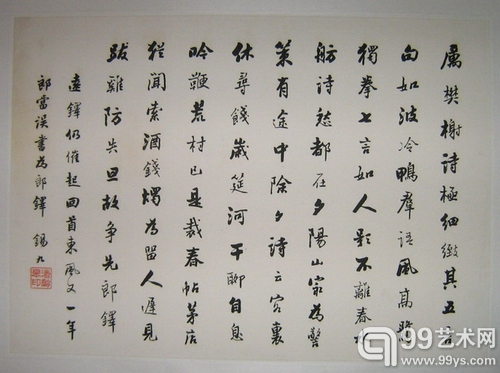 厲樊榭詩極細緻其五言
句如波冷鴨羣語風高鷺
獨拳七言如人影不離春水
舫詩愁都在夕陽山冣為警
策有途中除夕詩云客裏
休尋餞歲筵河干聊自息
吟鞭荒村已是裁春帖茅店
猶聞索酒錢燭為留人遲見
跋雞防失旦故爭先郎鐸
遠鐸仍催起回首東風又一年
郎當誤書為郎鐸 錫九
99艺术网
www.99ys.com